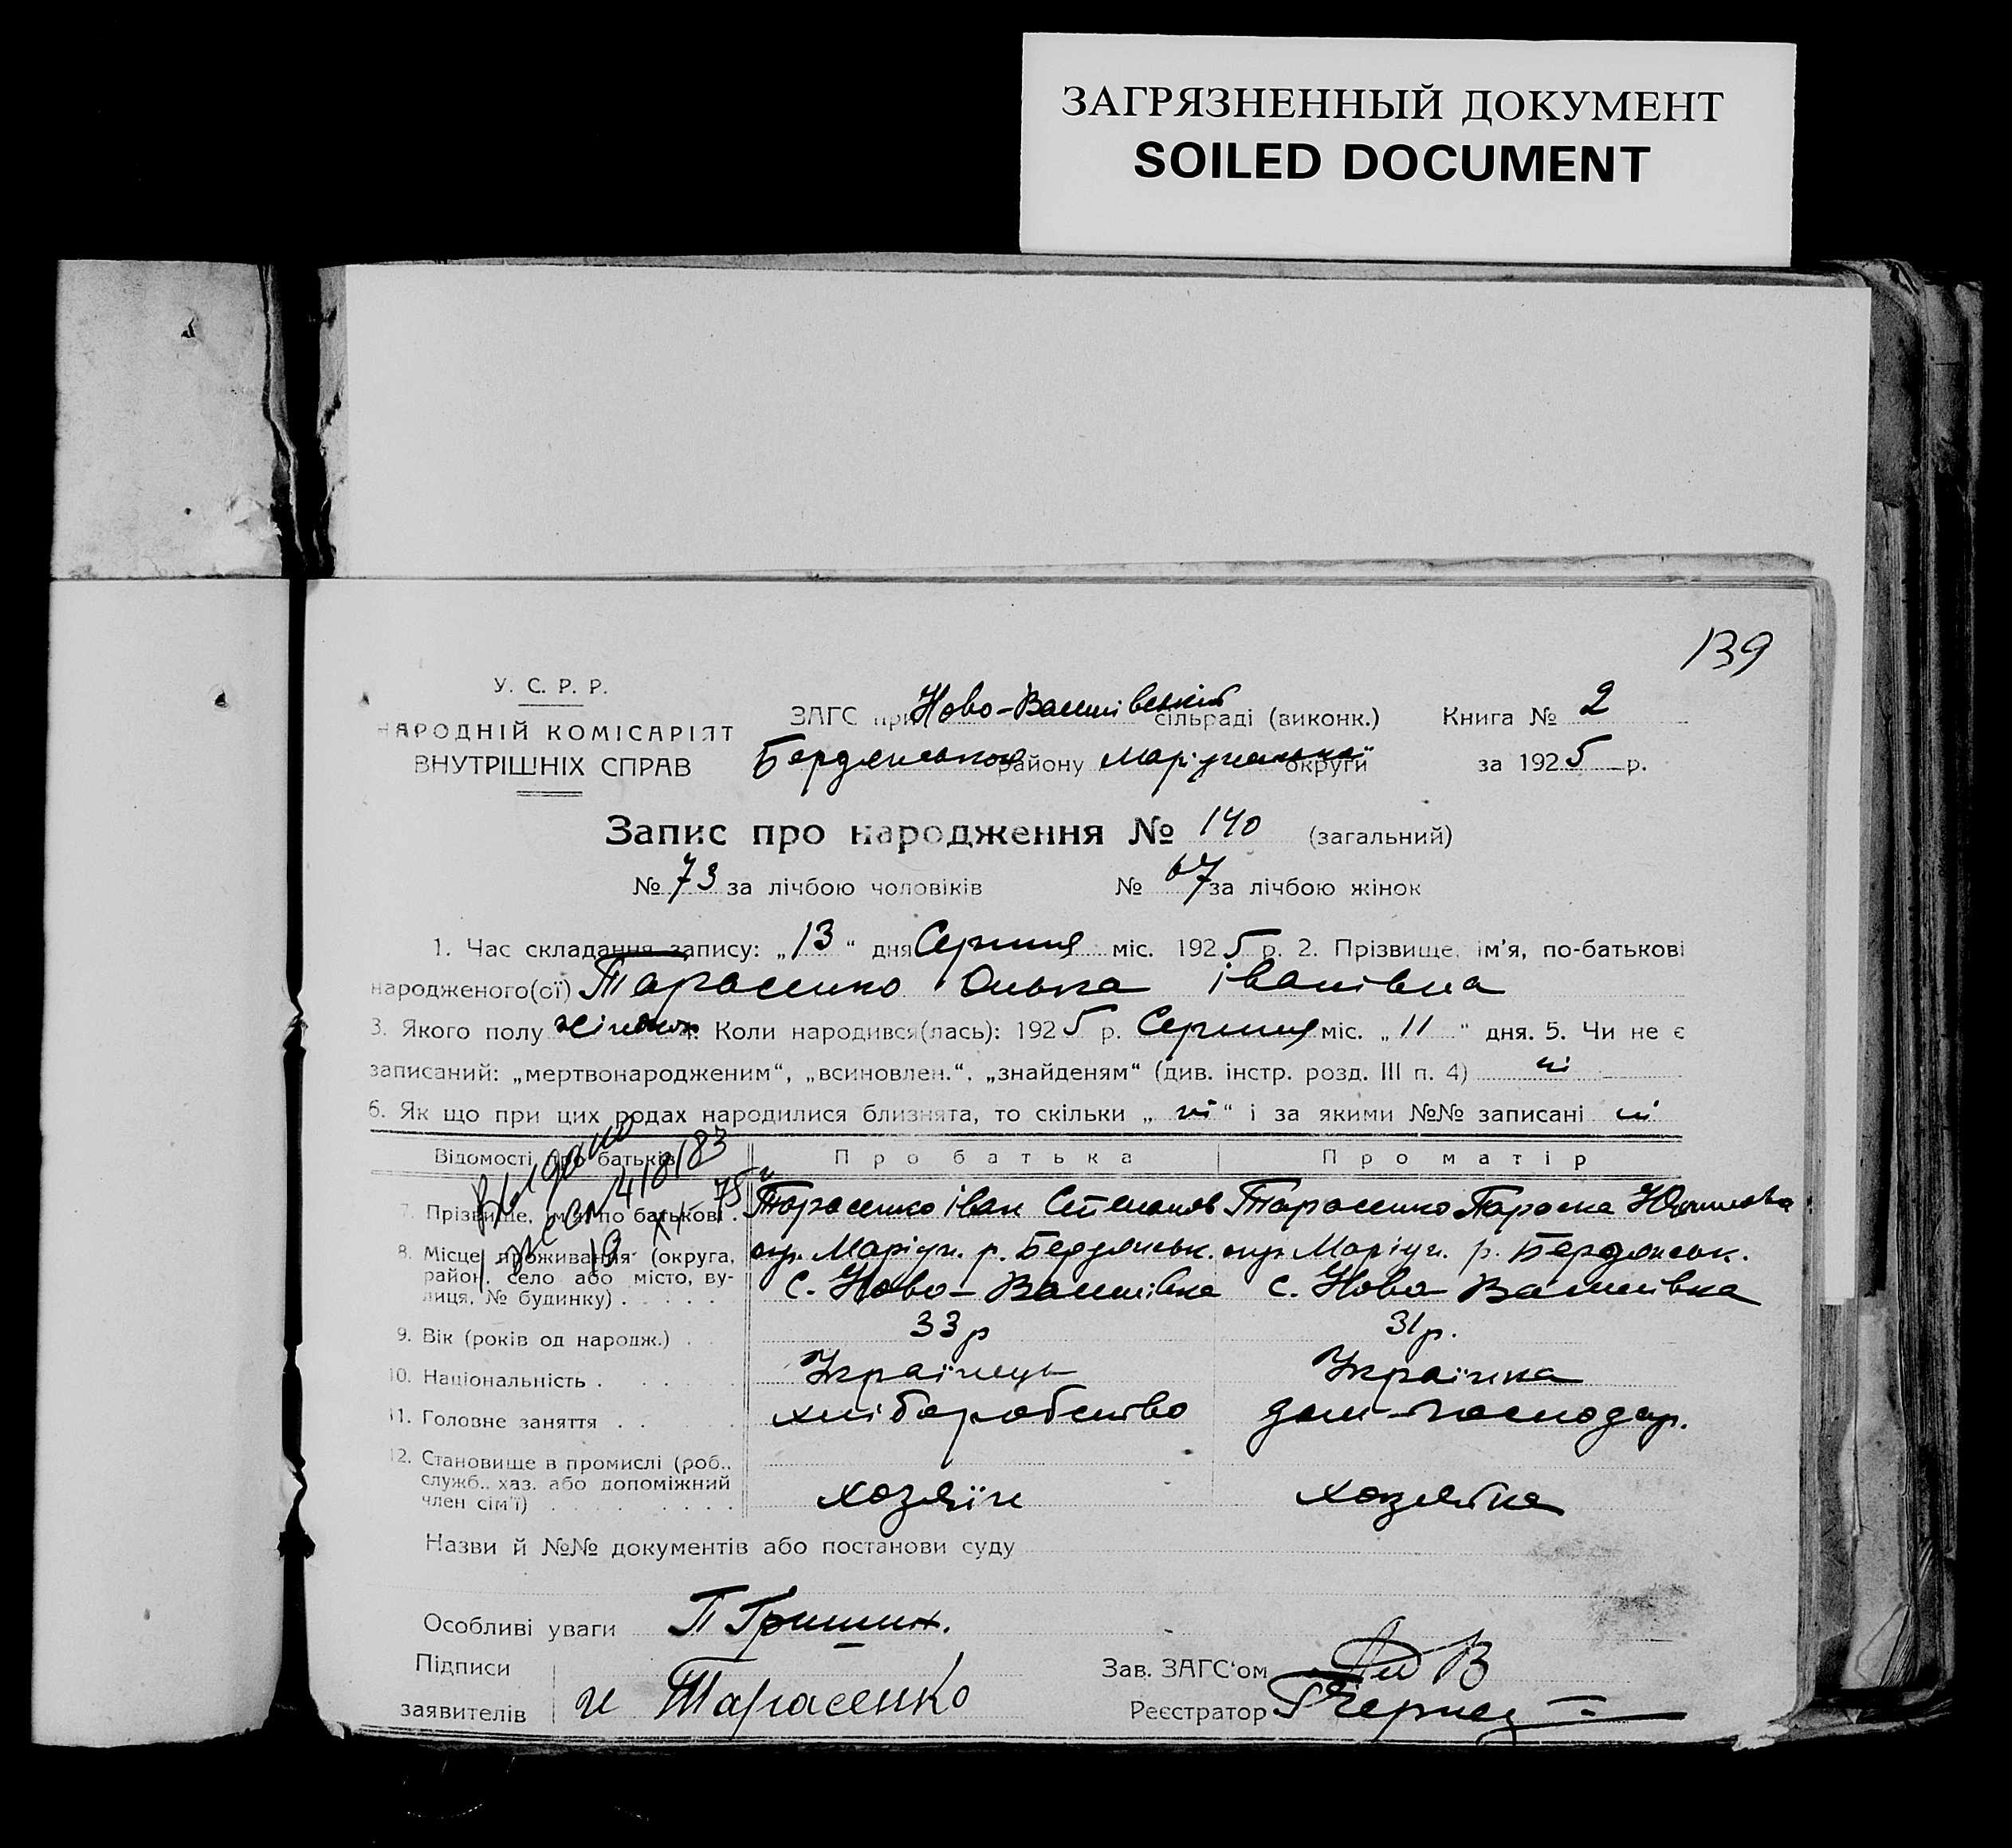 ЗАГРЯЗНЕННЫЙ ДОКУМЕНТ
SOILED DOCUMENT
139
У. С. Р. Р.
НАРОДНІЙ КОМІСАРІЯТ
ВНУТРІШНІХ СПРАВ
ЗАГС при Ново-Василівській сільраді (виконк.) Книга № 2
Бердянського району Маріупольської округи за 1925 р.
Запис про народження № 140 (загальний)
№ 73 за лічбою чоловіків № 67 за лічбою жінок
1. Час складання запису: „13“ дня Серпня міс. 1925 р. 2. Прізвище, ім'я, по-батькові
народженого(ої) Тарасенко Олька Іванівна
3. Якого полу жіночої 4. Коли народився(лась): 1925 р. Серпня міс. „11“ дня. 5. Чи не є
записаний: „мертвонародженим“, „всиновлен.“, „знайденям“ (див. інстр. розд. III п. 4) ні
6. Як що при цих родах народилися близнята, то скільки „ні“ і за якими №№ записані ні
Відомості про батьків Про батька Про матір
7. Прізвище, ім'я, по батькові Тарасенко Іван Степанов Тарасенко Параска
8. Місце проживання (округа, район, село або місто, ву-
лиця, № будинку) окр. Маріуп. р. Бердянськ. окр. Маріуп. р. Бердянськ.
с. Ново-Василівка с. Ново-Василівка
9. Вік (років од народж.) 33 р 31 р.
10. Національність Українець Українка
11. Головне заняття хліборобство дом-господар.
12. Становище в промислі (роб.,
служб., хаз. або допоміжний
член сім'ї) хозяїн хозяйка
Назви й №№ документів або постанови суду
Особливі уваги
Підписи
заявителів Тарасенко
Зав. ЗАГС'ом
Реєстратор